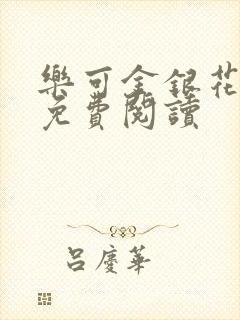 樂可金銀花
免費閱讀
呂慶華